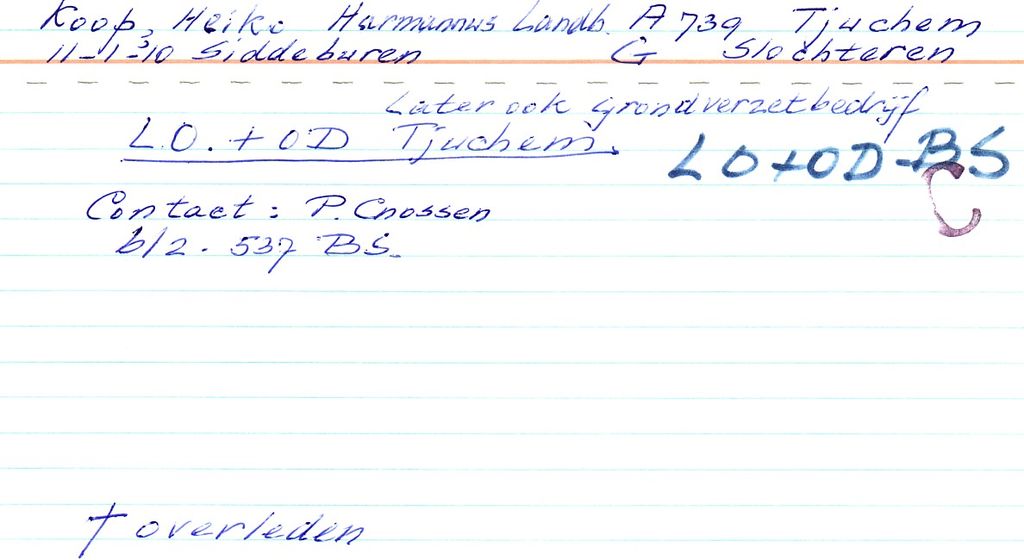 Koop, Heiko Harmannus Landb. A 739 Tjuchem
11-1-10 Siddeburen G Slochteren
Later ook grondverzetbedrijf
L.O. + OD Tjuchem.
LO+OD-BS
C
Contact: P. Cnossen
b/2. 537 BS.
† overleden